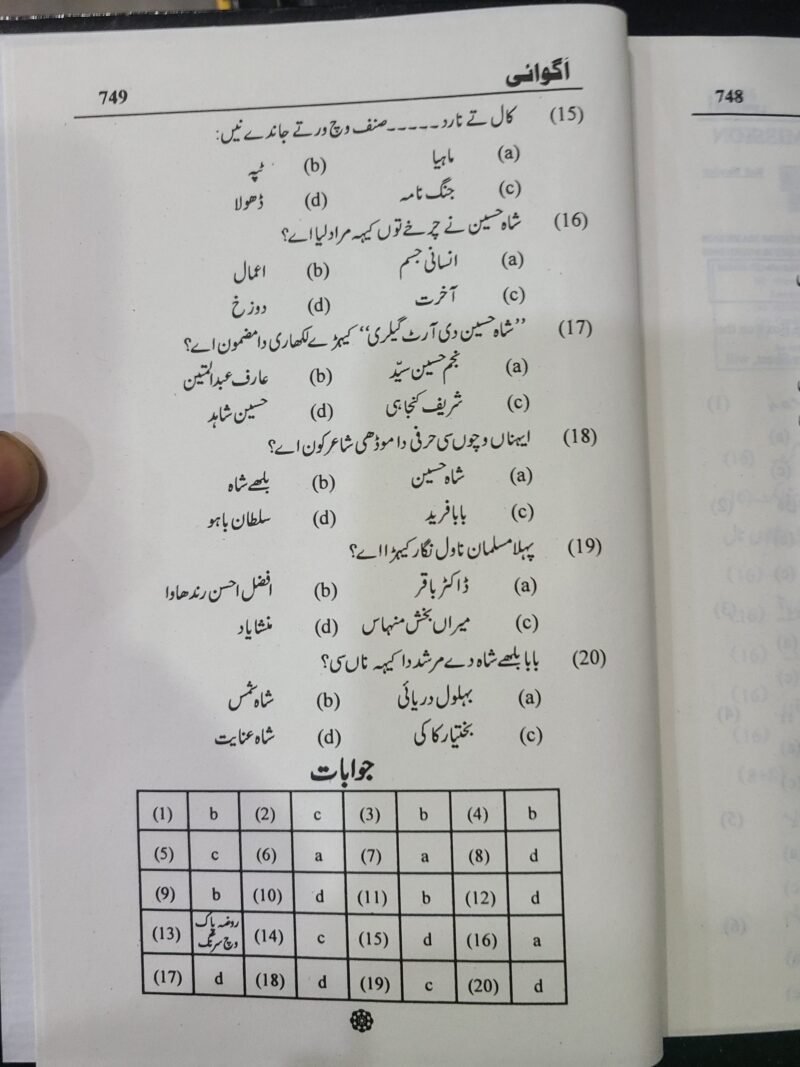 749
اَگوائی
(15) کال تے نارد ۔۔۔۔۔ صنف وچ ورتے جاندے نیں:
(a) ماہیا (b) ٹپہ
(c) جنگ نامہ (d) ڈھولا
(16) شاہ حسین نے چرخے توں کیہہ مراد لیا اے؟
(a) انسانی جسم (b) اعمال
(c) آخرت (d) دوزخ
(17) ’’شاہ حسین دی آرٹ گیلری‘‘ کیہڑے لکھاری دا مضمون اے؟
(a) نجم حسین سیّد (b) عارف عبدالمتین
(c) شریف کنجاہی (d) حسین شاہد
(18) ایہناں وچوں سی حرفی دا موڈھی شاعر کون اے؟
(a) شاہ حسین (b) بلھے شاہ
(c) بابا فرید (d) سلطان باہو
(19) پہلا مسلمان ناول نگار کیہڑا اے؟
(a) ڈاکٹر باقر (b) افضل احسن رندھاوا
(c) میراں بخش منہاس (d) منشا یاد
(20) بابا بلھے شاہ دے مرشد دا کیہہ ناں سی؟
(a) بہلول دریائی (b) شاہ شمس
(c) بختیار کاکی (d) شاہ عنایت
جوابات
(1) b (2) c (3) b (4) b
(5) c (6) a (7) a (8) d
(9) b (10) d (11) b (12) d
(13) روضہ پاک وچ سرنگ (14) c (15) d (16) a
(17) d (18) d (19) c (20) d
748